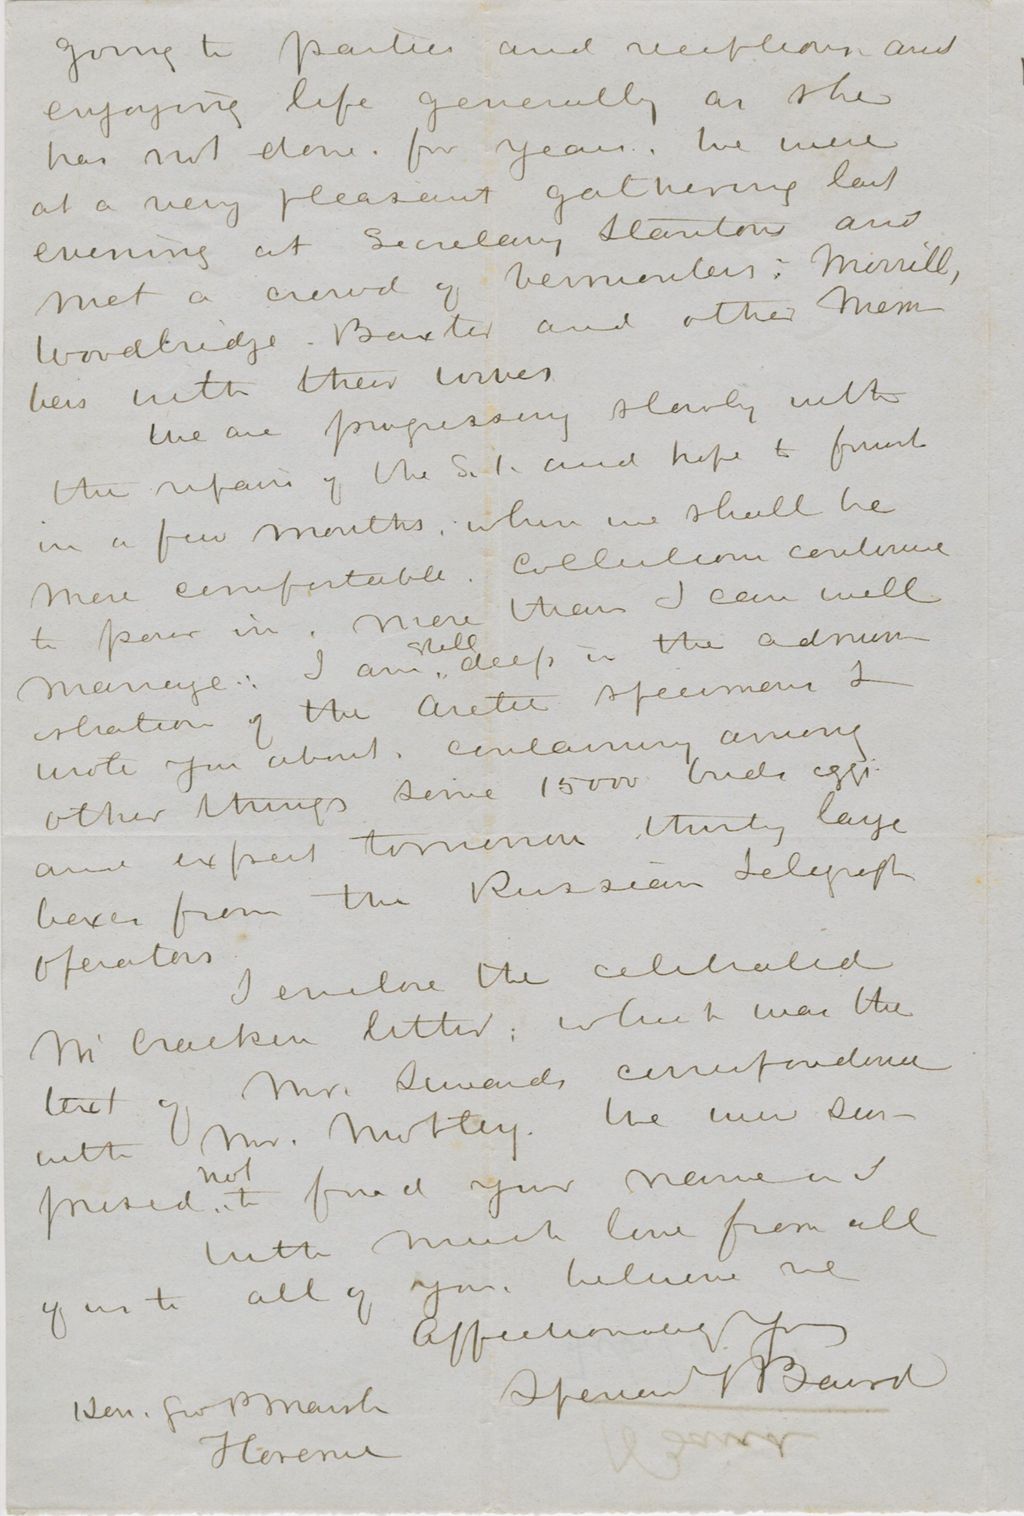 going to parties and receptions and
enjoying life generally as she
has not done for years. We were
at a very pleasant gathering last
evening at Secretary Stantons and
met a crowd of Vermonters: Morrill,
Woodbridge. Baxter and other Mem-
bers with their wives
We are progressing slowly with
the repairs of the S. I. and hope to finish
in a few months, when we shall be
more comfortable. Collections continue
to pour in, more than I can well
manage: I am still deep in the admin-
istration of the Arctic specimens I
wrote you about, containing among
other things some 15000 birds eggs.
and expect tomorrow thirty large
boxes from the Russian Telegraph
Operators
I enclose the celebrated
Mc Cracken letter; which was the
text of Mr. Sewards correspondence
with Mr. Motley. We were sur-
prised not to find your name in it
With much love from all
of us to all of you, believe me
Affectionately Yours
Spencer F Baird
Hon. Geo P Marsh
Florence